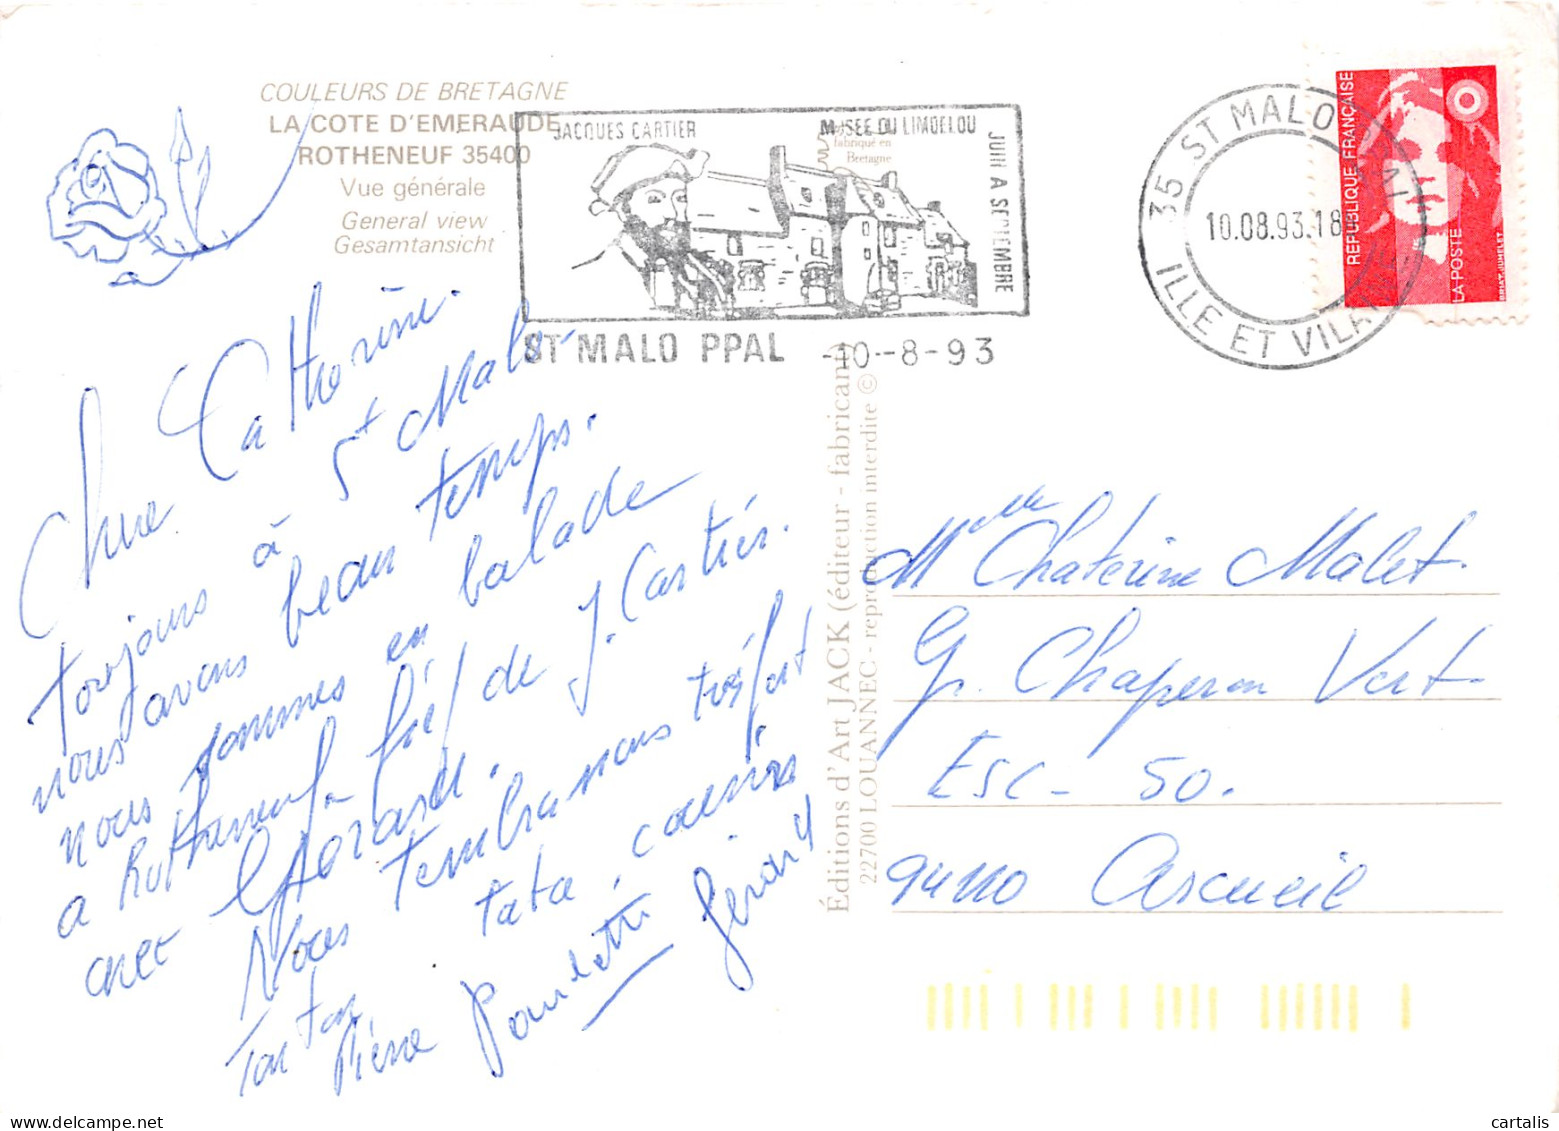 COULEURS DE BRETAGNE
LA COTE D'EMERAUDE
ROTHENEUF 35400
Vue générale
General view
Gesamtansicht
JACQUES CARTIER
MUSEE DU LIMOELOU
JUIN A SEPTEMBRE
fabriqué en
Bretagne
ST MALO PPAL -10--8-93
35 ST MALO
10.08.93.18
ILLE ET VILAINE
RÉPUBLIQUE FRANÇAISE
LA POSTE
BRIAT-JUMELET
Chere Catherine.
toujours à St Malo
nous avons beau temps.
nous sommes en balade
a Rotheneuf fief de J. Cartier.
avec Gérard.
Nous t'embrassons très fort
Tonton tata, cousins
Pierre Paulette Gérard
Éditions d'Art JACK (éditeur - fabricant)
22700 LOUANNEC - reproduction interdite ©
Melle Chaterine Malet.
Gr. Chaperon Vert.
Esc - 50.
94110 Arcueil
cartalis